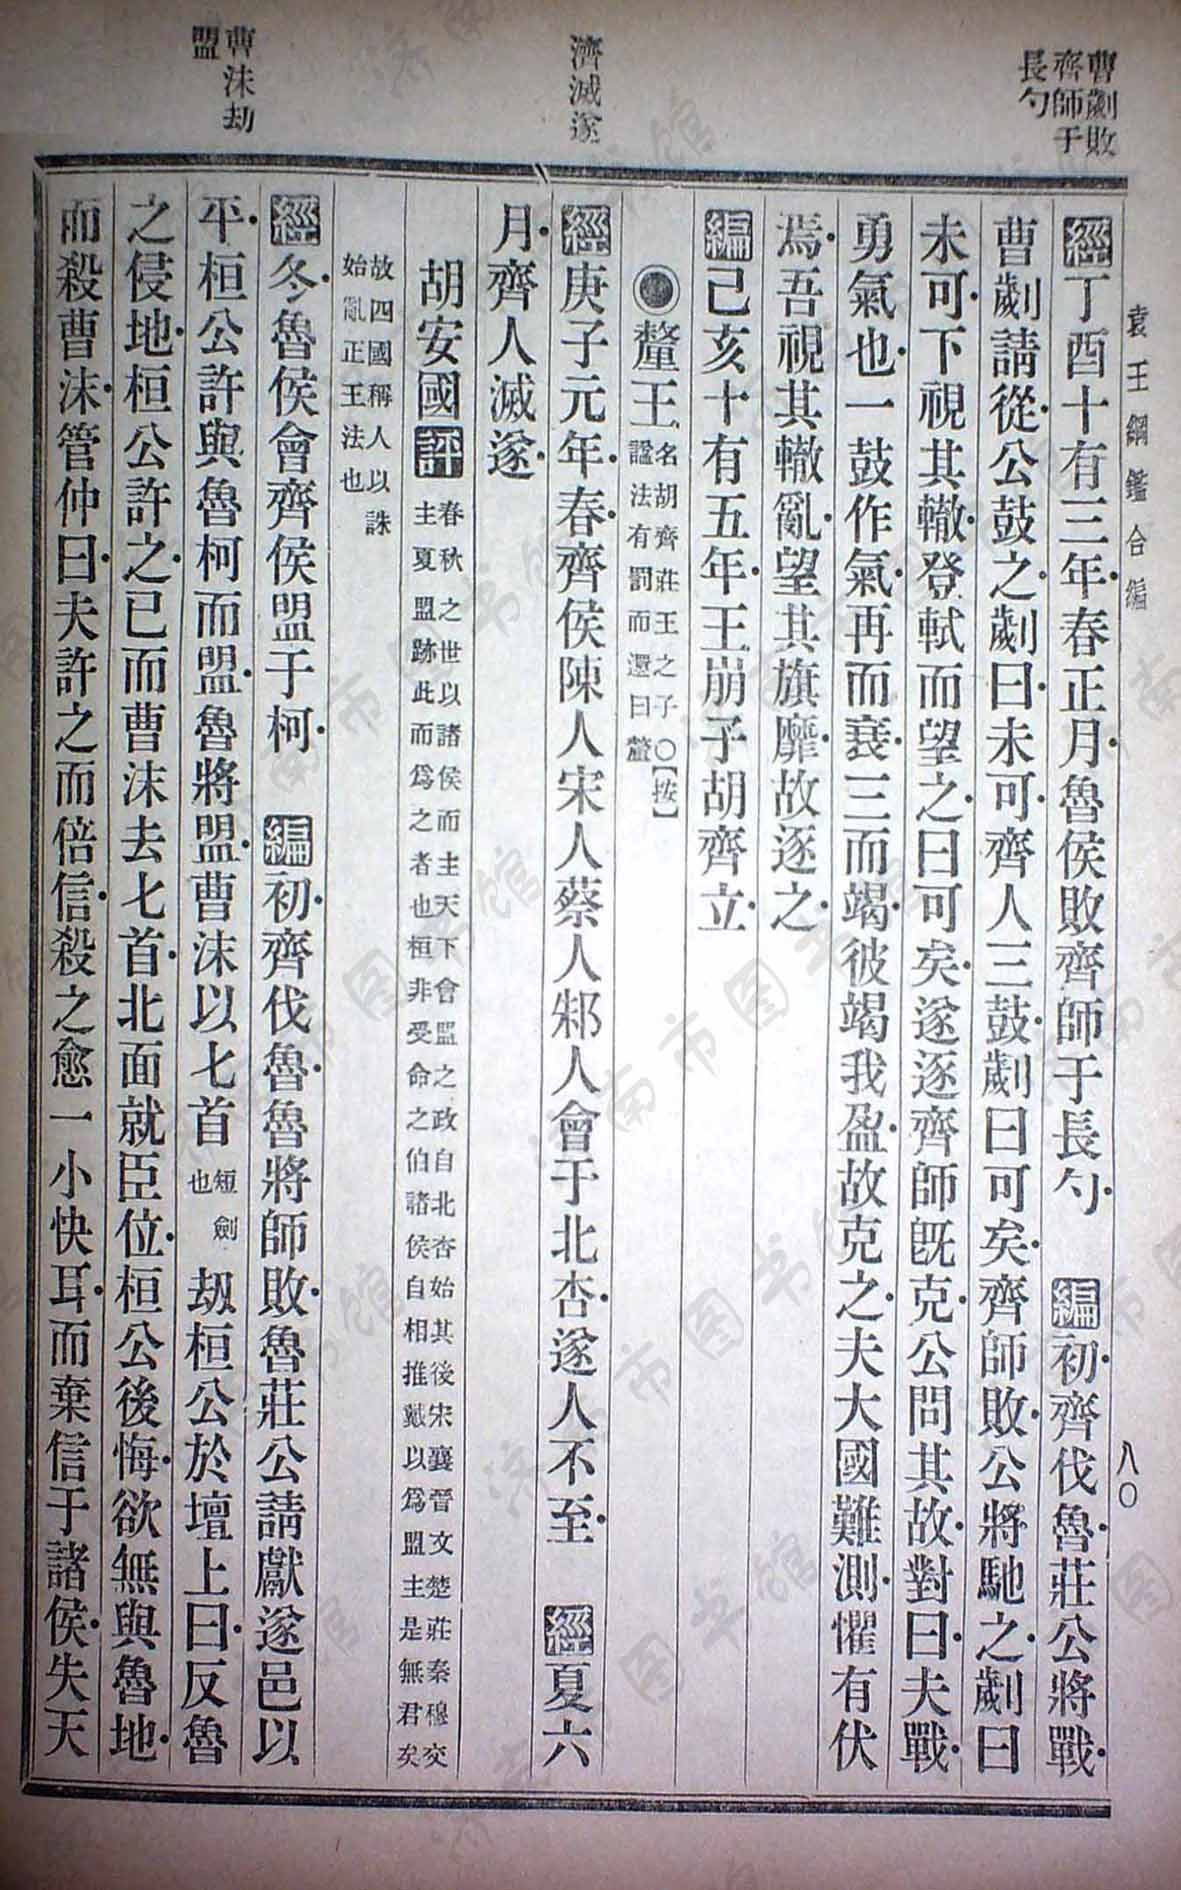 曹劌敗
齊師于
長勺
濟滅遂
曹沫劫
盟
袁王綱鑑合編
八〇
經丁酉十有三年春正月魯侯敗齊師于長勺 編初齊伐魯莊公將戰
曹劌請從公鼓之劌曰未可齊人三鼓劌曰可矣齊師敗公將馳之劌曰
未可下視其轍登軾而望之曰可矣遂逐齊師旣克公問其故對曰夫戰
勇氣也一鼓作氣再而衰三而竭彼竭我盈故克之夫大國難測懼有伏
焉吾視其轍亂望其旗靡故逐之
編己亥十有五年王崩子胡齊立
釐王名胡齊莊王之子〇【按】
諡法有罰而還曰釐
經庚子元年春齊侯陳人宋人蔡人邾人會于北杏遂人不至 經夏六
月齊人滅遂
胡安國評春秋之世以諸侯而主天下會盟之政自北杏始其後宋襄晉文楚莊秦穆交
主夏盟跡此而爲之者也桓非受命之伯諸侯自相推戴以爲盟主是無君矣
故四國稱人以誅
始亂正王法也
經冬魯侯會齊侯盟于柯 編初齊伐魯魯將師敗魯莊公請獻遂邑以
平桓公許與魯柯而盟魯將盟曹沫以匕首短劍也劫桓公於壇上曰反魯
之侵地桓公許之已而曹沫去匕首北面就臣位桓公後悔欲無與魯地
而殺曹沫管仲曰夫許之而倍信殺之愈一小快耳而棄信于諸侯失天